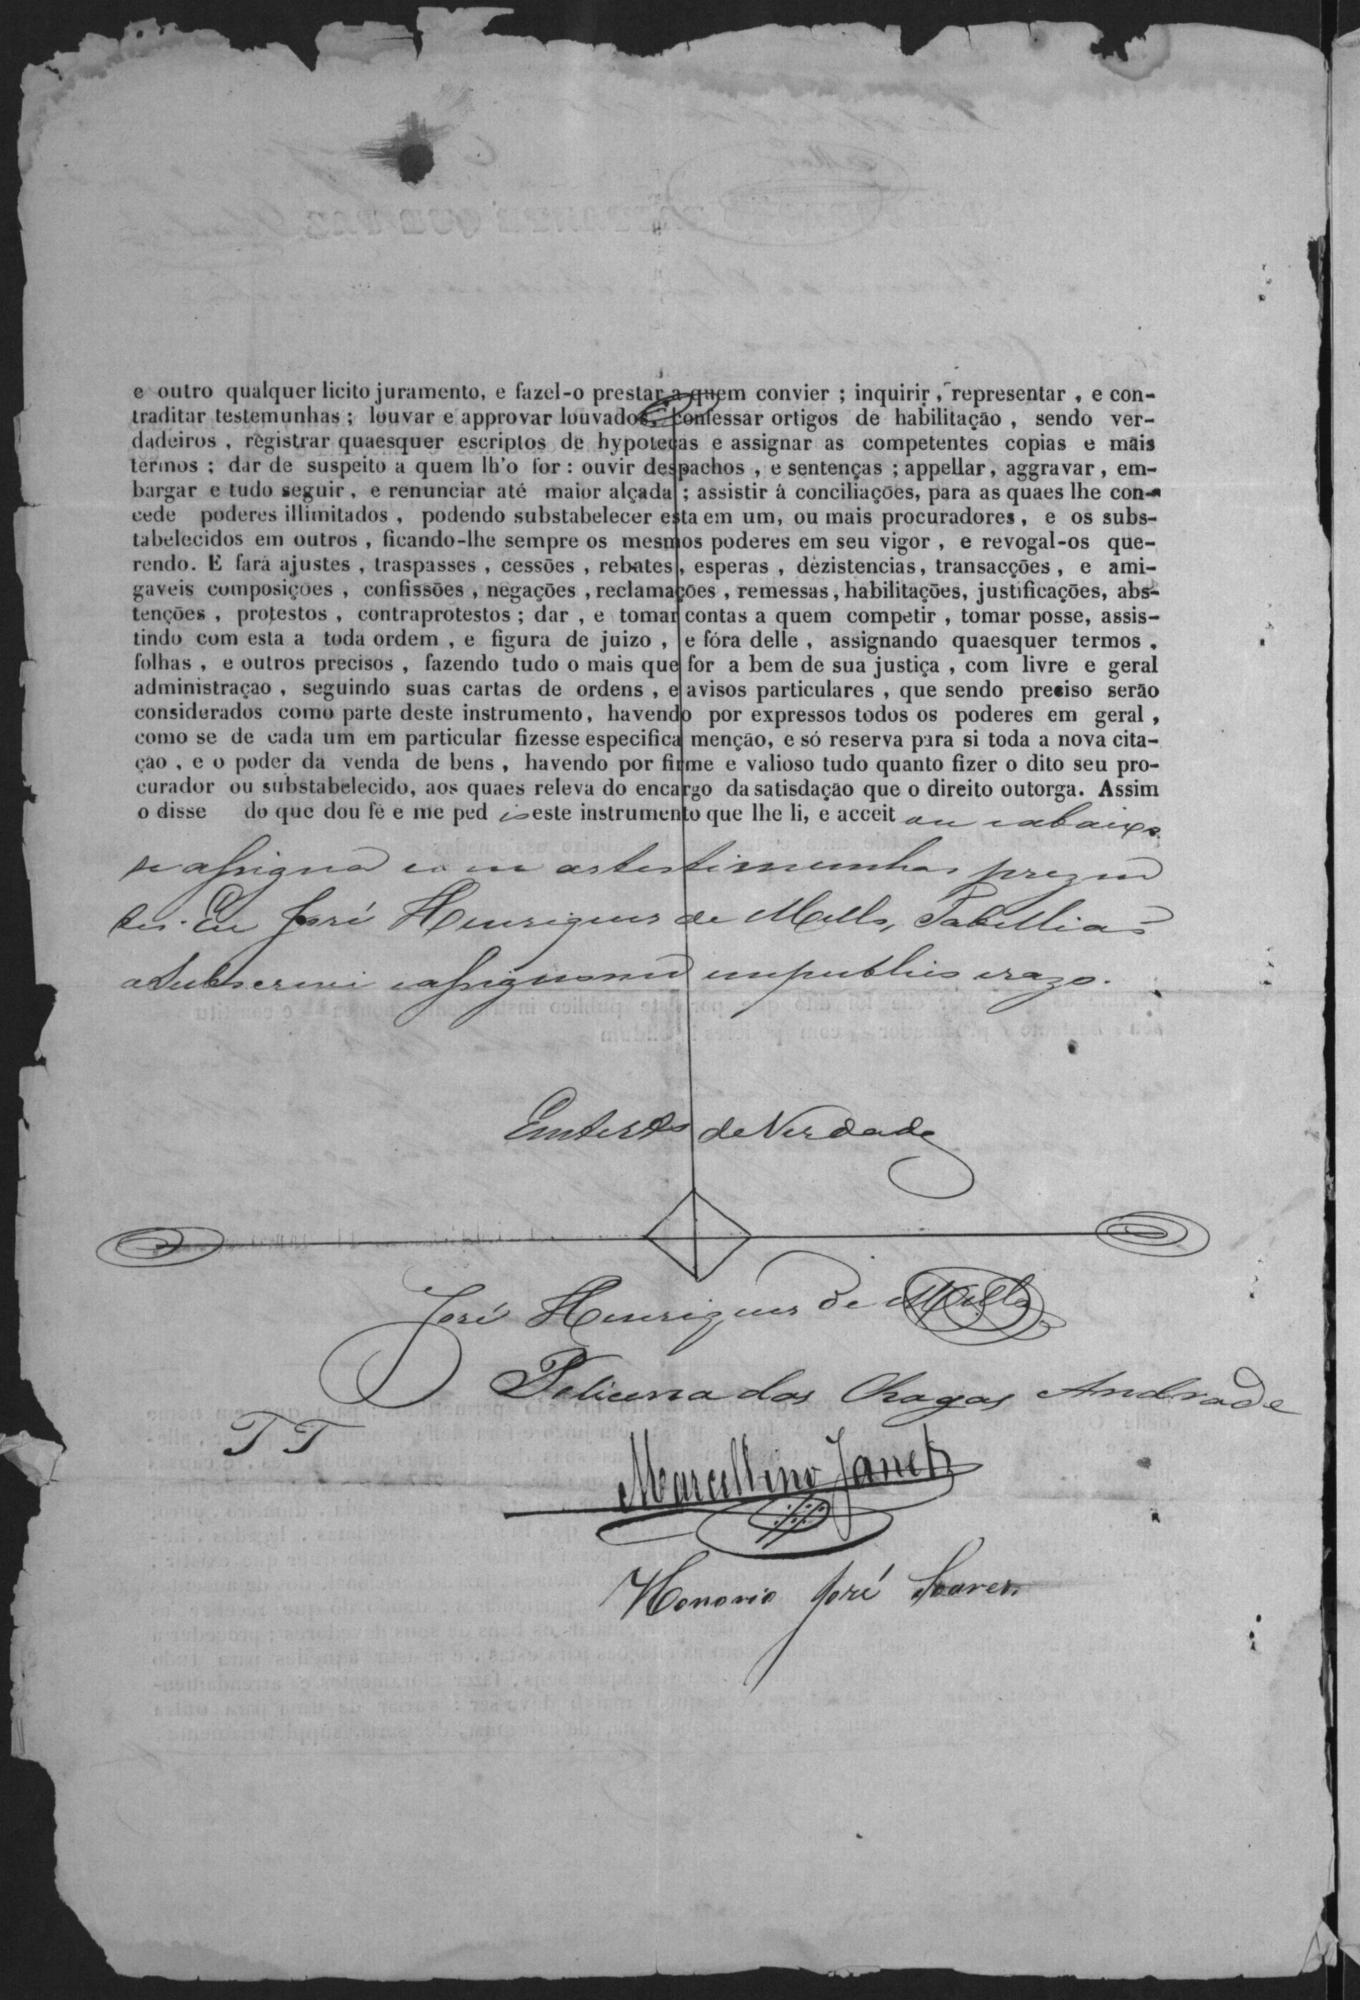 e outro qualquer licito juramento, e fazel-o prestar a quem convier ; inquirir, representar , e con-
traditar testemunhas ; louvar e approvar louvados ; confessar ortigos de habilitação , sendo ver-
dadeiros , registrar quaesquer escriptos de hypotecas e assignar as competentes copias e mais
termos ; dar de suspeito a quem lh'o for : ouvir despachos , e sentenças ; appellar, aggravar, em-
bargar e tudo seguir, e renunciar até maior alçada ; assistir á conciliações, para as quaes lhe con-
cede poderes illimitados , podendo substabelecer esta em um, ou mais procuradores, e os subs-
tabelecidos em outros , ficando-lhe sempre os mesmos poderes em seu vigor , e revogal-os que-
rendo. E fará ajustes , traspasses , cessões , rebates , esperas , dezistencias, transacções , e ami-
gaveis composições , confissões , negações , reclamações , remessas, habilitações, justificações, abs-
tenções , protestos , contraprotestos ; dar , e tomar contas a quem competir , tomar posse, assis-
tindo com esta a toda ordem , e figura de juizo , e fóra delle , assignando quaesquer termos ,
folhas , e outros precisos , fazendo tudo o mais que for a bem de sua justiça , com livre e geral
administraçao , seguindo suas cartas de ordens , e avisos particulares , que sendo preciso serão
considerados como parte deste instrumento, havendo por expressos todos os poderes em geral ,
como se de cada um em particular fizesse especifica menção, e só reserva para si toda a nova cita-
ção , e o poder da venda de bens , havendo por firme e valioso tudo quanto fizer o dito seu pro-
curador ou substabelecido, aos quaes releva do encargo da satisdação que o direito outorga. Assim
o disse do que dou fé e me ped io este instrumento que lhe li, e acceit ou eabaixo
se assigna com astestimunhas prezen
tes. Eu José Henriques de Mello, Tabellião
asubscrevi eassignoemo empublico erazo.
Emtestº de Verdade
José Henriques de Mello
Felicena das Chagas Andrade
TT
Marcellino Janet
Honorio José Soares